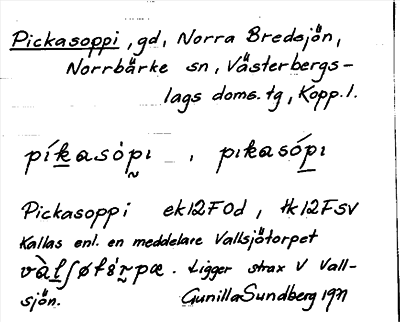 Pickasoppi, gd, Norra Bredsjön,
Norrbärke sn, Västerbergs-
lags doms. tg, Kopp. l.
píkasòpı , pıkasópı
Pickasoppi ek12F0d, tk12FSV
Kallas enl. en meddelare Vallsjötorpet
Ligger strax V Vall-
sjön. Gunilla Sundberg 1971